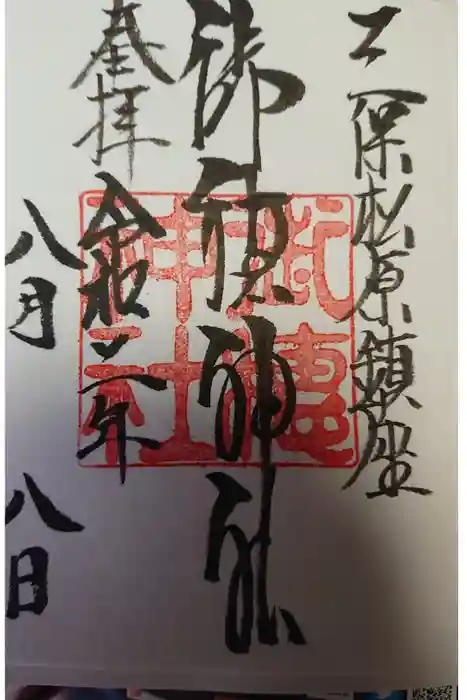 三保松原鎮座
御穂神社
奉拝
令和二年
八月
八日